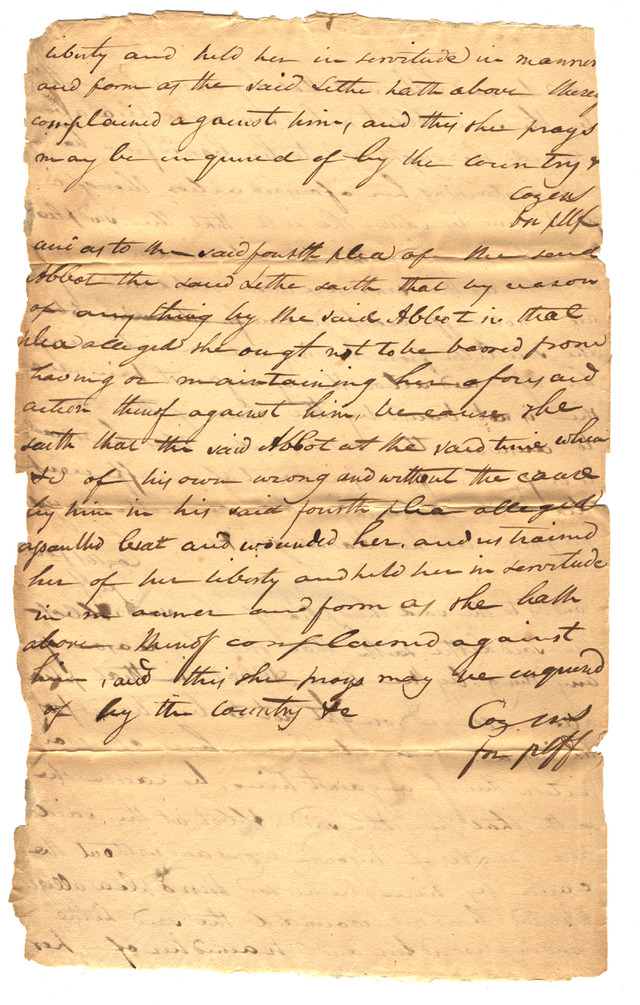 liberty and held her in servitude in manner
and form as the said Lethe hath above thereof
complained against him, and this she prays
may be inquired of by the country &
Cozens
for plff
and as to the said fourth plea of the said
Abbot the said Lethe saith that by reason
of any thing by the said Abbot in that
plea alleged she ought not to be barred from
having or maintaining her aforesaid
action thereof against him, because she
saith that the said Abbot at the said time when
&c of his own wrong and without the cause
by him in his said fourth plea alleged
assaulted beat and wounded her, and restrained
her of her liberty and held her in servitude
in manner and form as she hath
above thereof complained against
him, and this she prays may be enquired
of by the country &c
Cozens
for plff